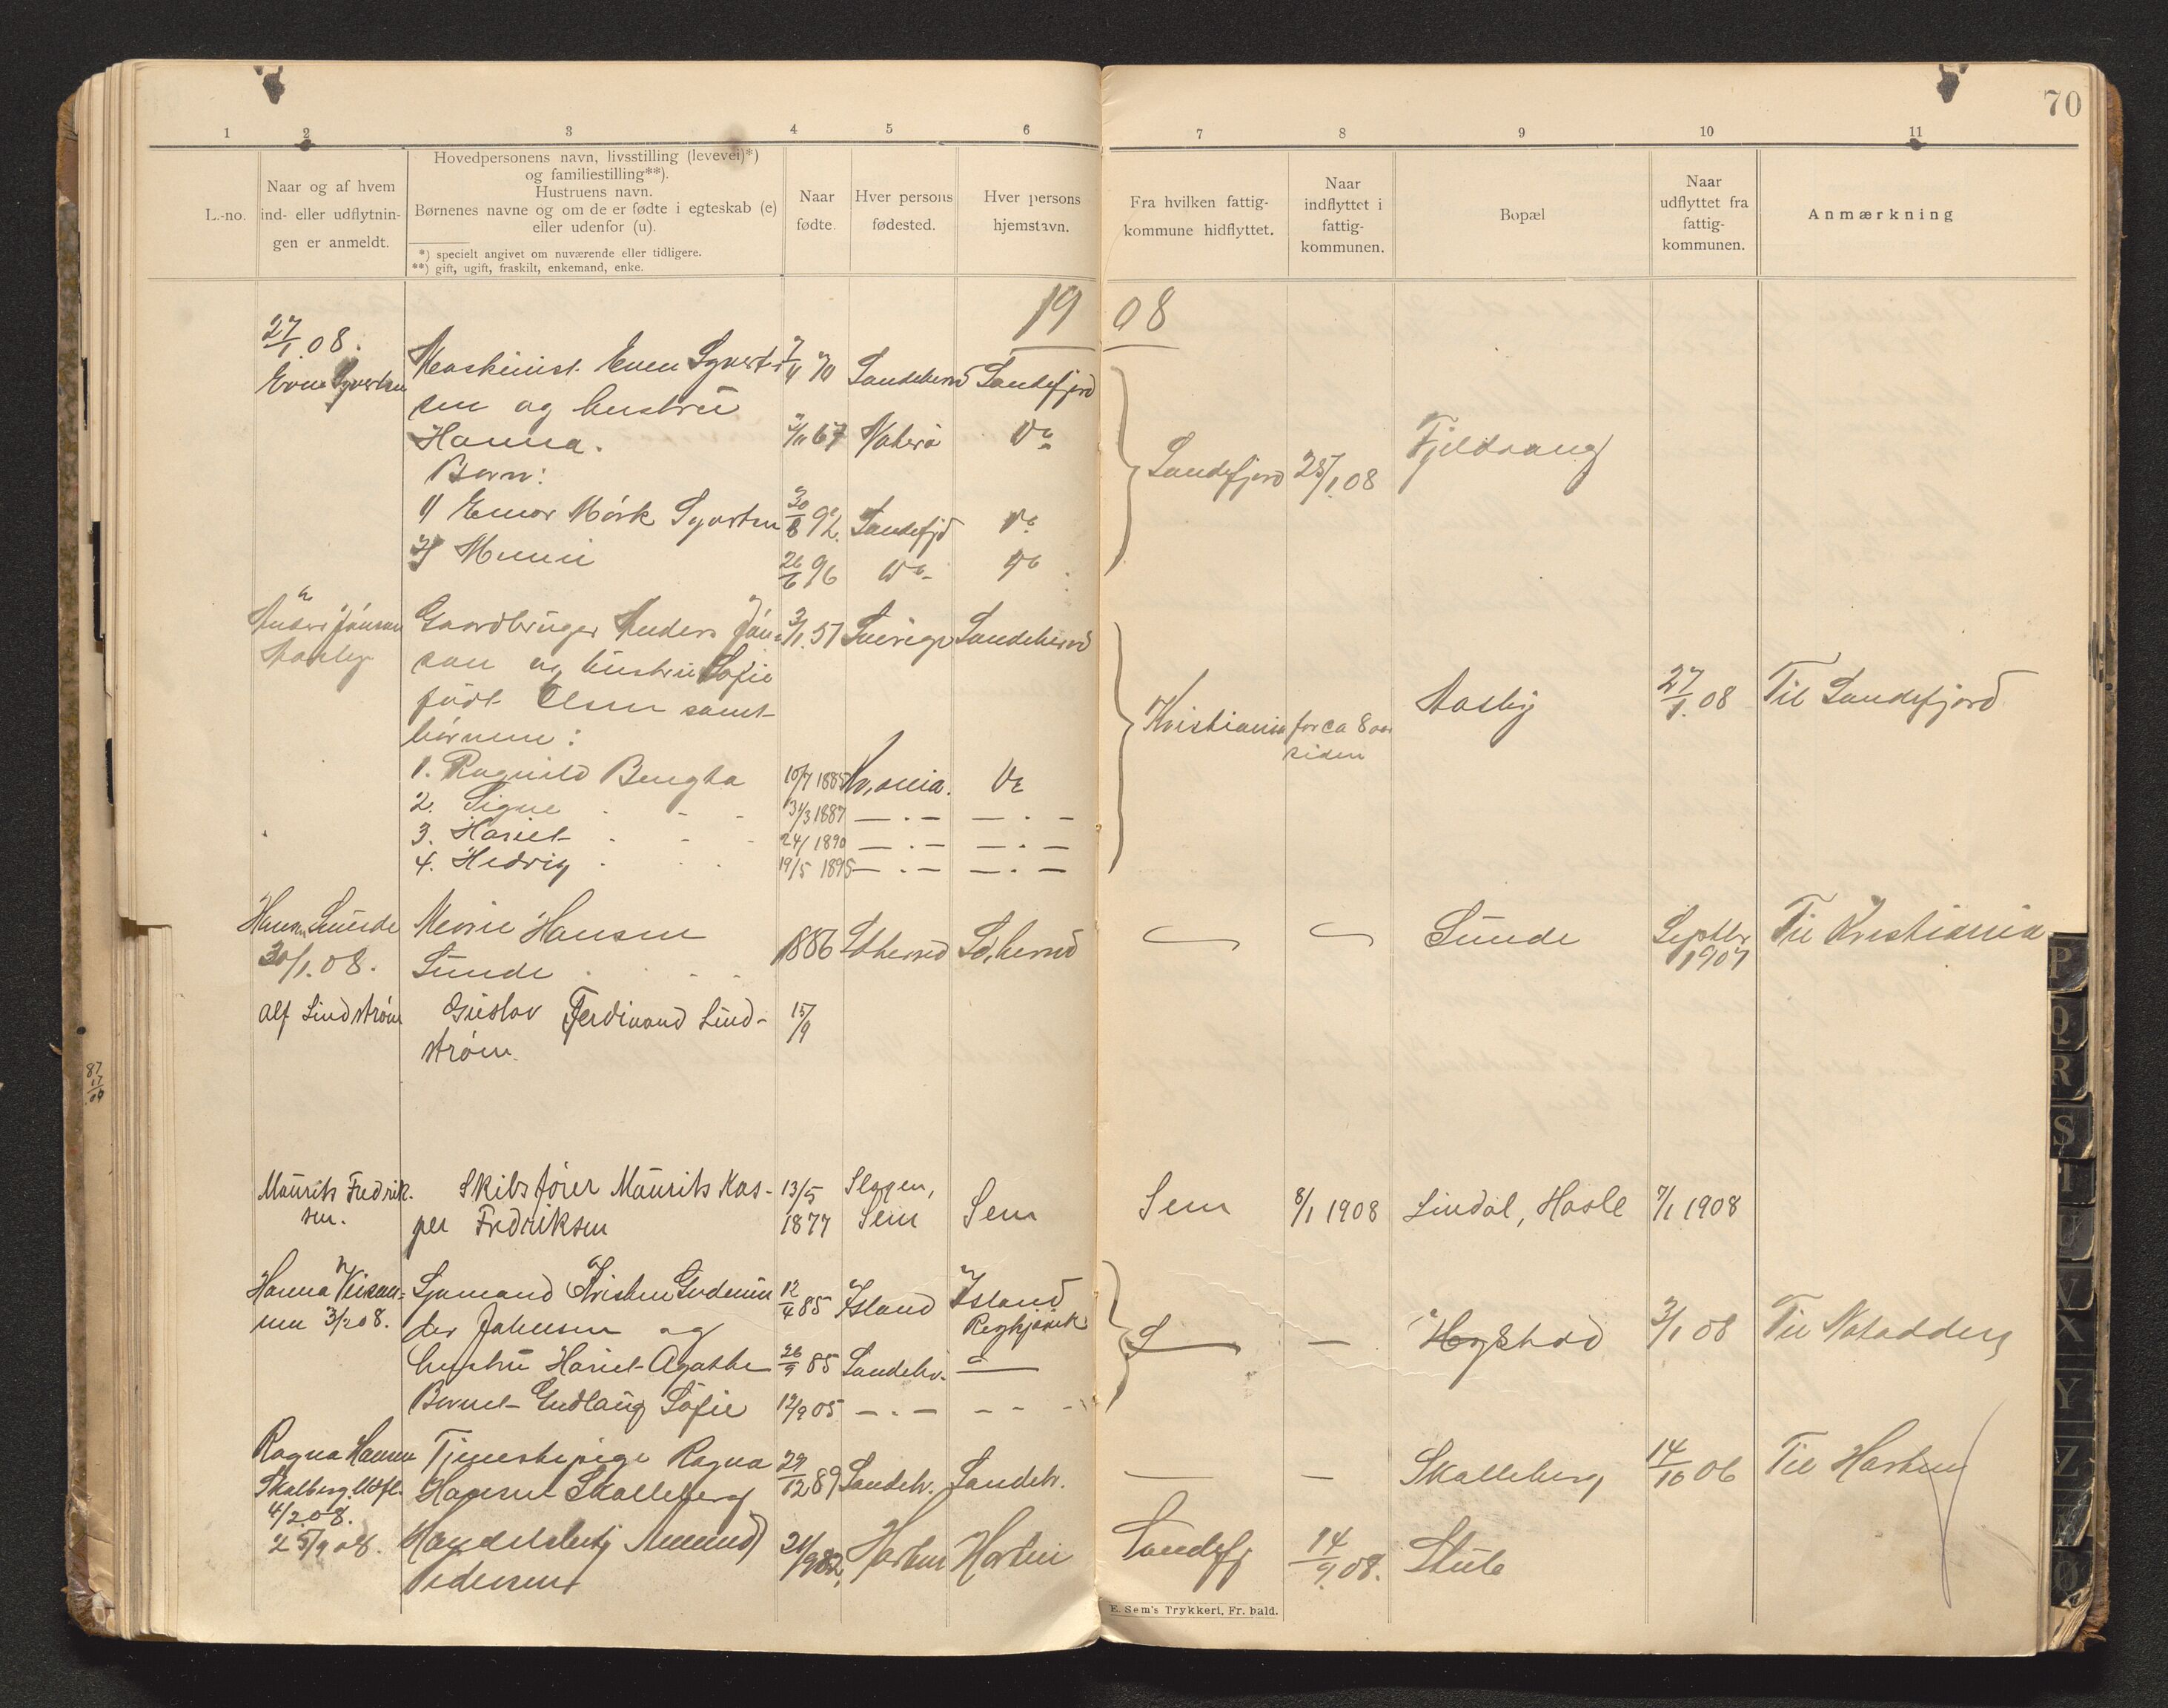 70
1 2 3 4 5 6 7 8 9 10 11
L.-no.
Naar og af hvem
ind- eller udflytnin-
gen er anmeldt.
Hovedpersonens navn, livsstilling (levevei)*)
og familiestilling**).
Hustruens navn.
Børnenes navne og om de er fødte i egteskab (e)
eller udenfor (u).
*) specielt angivet om nuværende eller tidligere.
**) gift, ugift, fraskilt, enkemand, enke.
Naar
fødte.
Hver persons
fødested.
Hver persons
hjemstavn.
Fra hvilken fattig-
kommune hidflyttet.
Naar
indflyttet i
fattig-
kommunen.
Bopæl
Naar
udflyttet fra
fattig-
kommunen.
Anmærkning
19 08
27/1.08.
Even Syvertsen
Maskinist Even Syvert-
sen og hustru
Hanna.
Børn:
1) Einar Mörk Syvertsen 30/8 92. Sandefjd Do
2) 26/6 96 Do Do
Sandeherred Sandefjord
2/11 67 Do
Sandefjord 25/1.08
Anders Jónsson
Aasly
Gaardbruger Anders Jón- 3/1.51 Sverige Sandeherred
son og hustru Sofie
født Olsen samt
børnene:
1. Ragnild Bengta 10/7 Kr,ania. Do
2. Signe 31/3 1887 — . — — . —
3. Harriet 24/ 1890 — . — — . —
4. Hedvig 19/5 1895 — . — — . —
Kristiania for ca 8 aar
siden
27/1.08 Til Sandefjord
Hansen Sunde
30/1.08.
Hansen
Sunde
1886 Sdherred Sd,herred Sunde Septbr
1907
Til Kristiania
Alf Lindstrøm Gustav Ferdinand Lind- 15/9
strøm.
Maurits Fredrik-
sen.
Skibsfører Maurits Kas-
per Fredriksen
13/5
1877
Slagen,
Sem
Sem Sem 8/1 1908 Lindal, Hasle 7/1 1908
Hanna
3/2 08.
Sjømand Kristen
Johnsen og
12/4 85 Island Island
Reykjavik
hustru Harriet Agathe 26/9 85 Sandehr. —
Barnet Gudlaug Sofie 12/9 05 — . — — — —
3/1 08 Til
Ragna Hansen
Skalberg. Udfl.
4/2.08.
Tjenestepige Ragna
Hansen Skalleberg
29/12 89 Sandeh. Sandeh. — — Skalleberg 14/10 06 Til Horten
25/9 08. Handelsbetj Amund
Pedersen
Horten Horten Sandefj 14/9.08. Stub
E. Sem's Trykkeri, Fr. hald.
87
17
09
P
Q
R
S
T
U
V
X
Y
Z
Æ
Ø